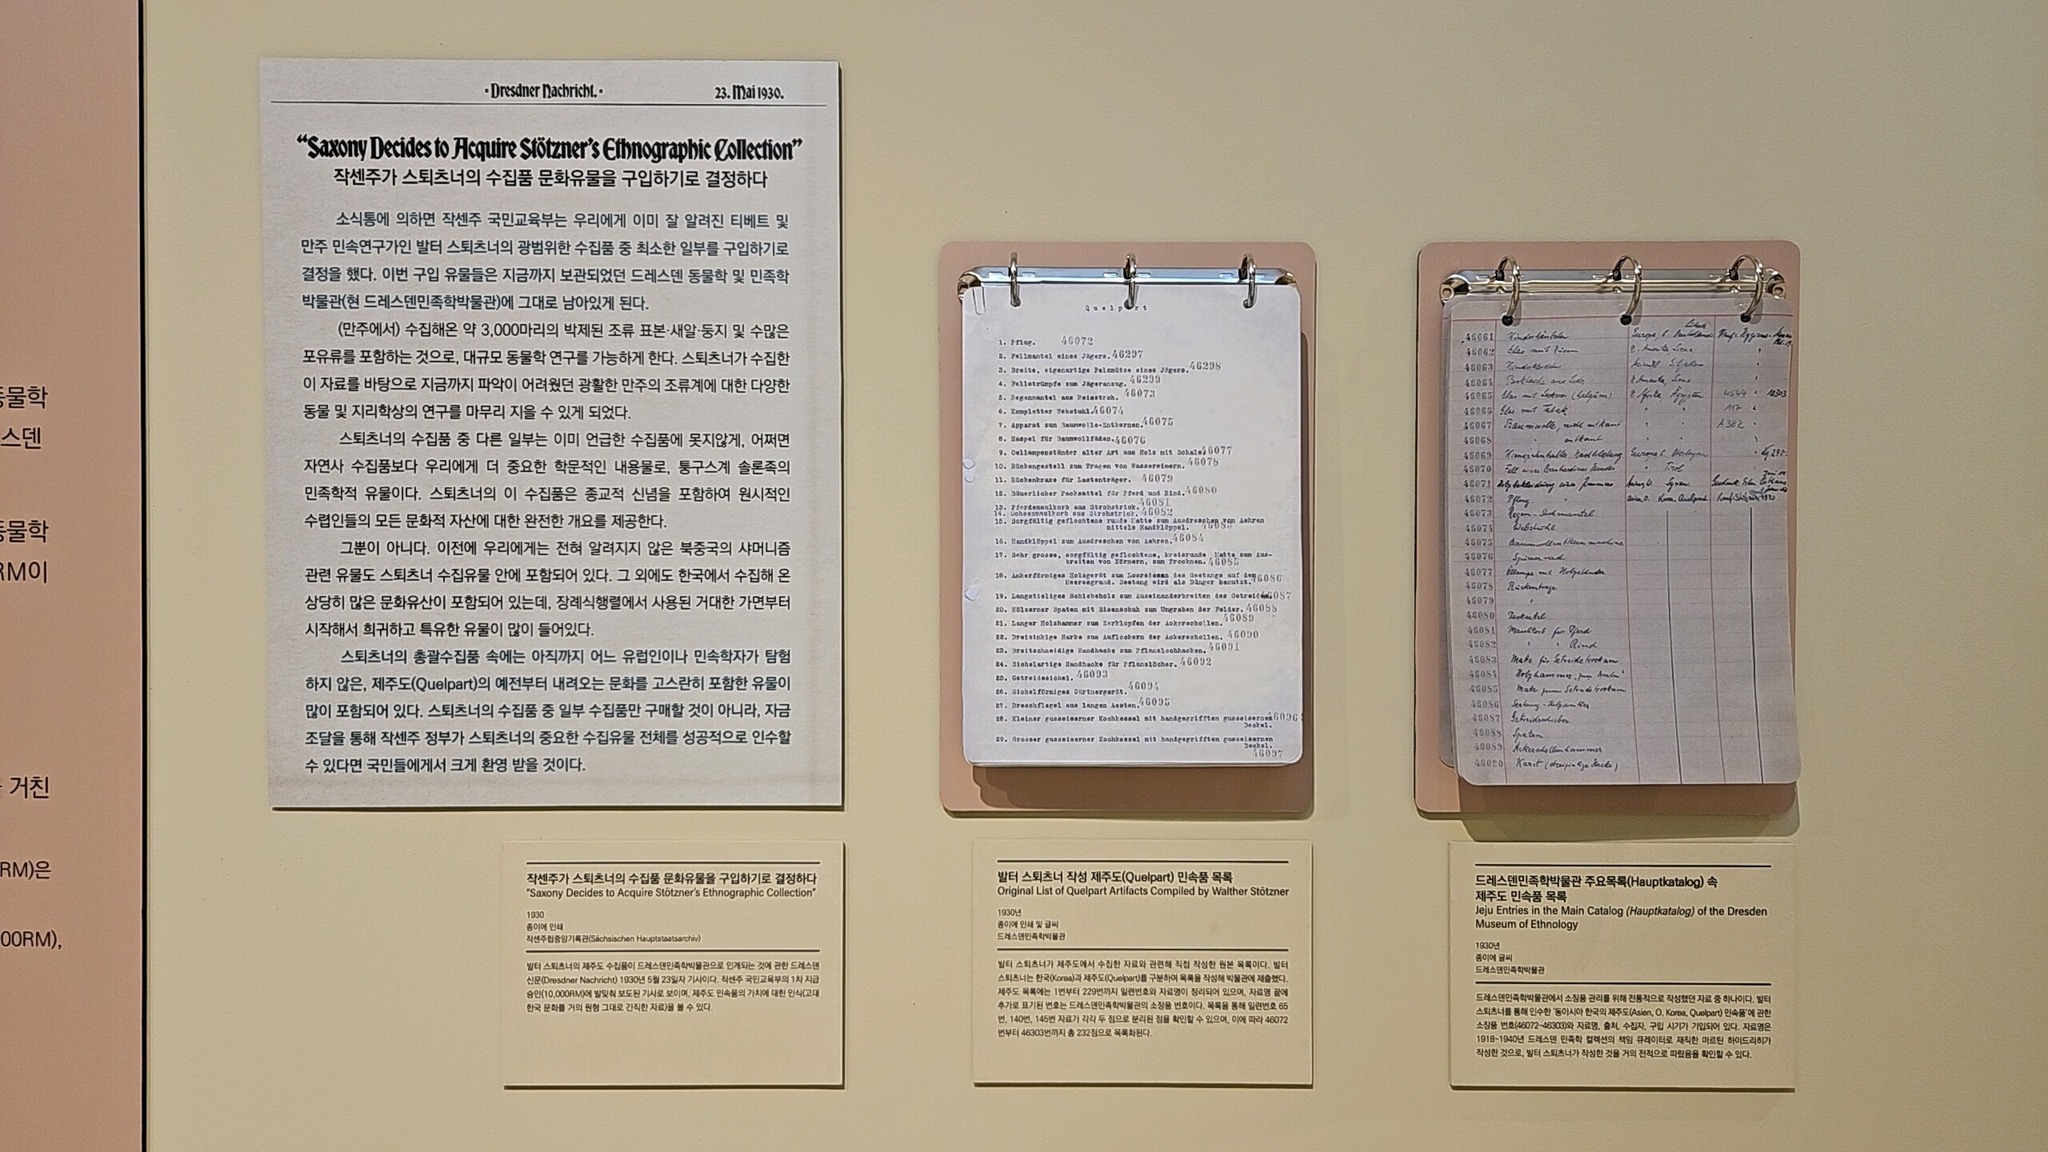 동물학
스덴
동물학
RM이
거친
RM)은
00RM),
·Dresdner Nachricht.·
23. Mai 1930.
“Saxony Decides to Acquire Stötzner’s Ethnographic Collection”
작센주가 스퇴츠너의 수집품 문화유물을 구입하기로 결정하다
소식통에 의하면 작센주 국민교육부는 우리에게 이미 잘 알려진 티베트 및
만주 민속연구가인 발터 스퇴츠너의 광범위한 수집품 중 최소한 일부를 구입하기로
결정을 했다. 이번 구입 유물들은 지금까지 보관되었던 드레스덴 동물학 및 민족학
박물관(현 드레스덴민족학박물관)에 그대로 남아있게 된다.
(만주에서) 수집해온 약 3,000마리의 박제된 조류 표본·새알·둥지 및 수많은
포유류를 포함하는 것으로, 대규모 동물학 연구를 가능하게 한다. 스퇴츠너가 수집한
이 자료를 바탕으로 지금까지 파악이 어려웠던 광활한 만주의 조류계에 대한 다양한
동물 및 지리학상의 연구를 마무리 지을 수 있게 되었다.
스퇴츠너의 수집품 중 다른 일부는 이미 언급한 수집품에 못지않게, 어쩌면
자연사 수집품보다 우리에게 더 중요한 학문적인 내용물로, 퉁구스계 솔론족의
민족학적 유물이다. 스퇴츠너의 이 수집품은 종교적 신념을 포함하여 원시적인
수렵인들의 모든 문화적 자산에 대한 완전한 개요를 제공한다.
그뿐이 아니다. 이전에 우리에게는 전혀 알려지지 않은 북중국의 샤머니즘
관련 유물도 스퇴츠너 수집유물 안에 포함되어 있다. 그 외에도 한국에서 수집해 온
상당히 많은 문화유산이 포함되어 있는데, 장례식행렬에서 사용된 거대한 가면부터
시작해서 희귀하고 특유한 유물이 많이 들어있다.
스퇴츠너의 총괄수집품 속에는 아직까지 어느 유럽인이나 민속학자가 탐험
하지 않은, 제주도(Quelpart)의 예전부터 내려오는 문화를 고스란히 포함한 유물이
많이 포함되어 있다. 스퇴츠너의 수집품 중 일부 수집품만 구매할 것이 아니라, 자금
조달을 통해 작센주 정부가 스퇴츠너의 중요한 수집유물 전체를 성공적으로 인수할
수 있다면 국민들에게서 크게 환영 받을 것이다.
작센주가 스퇴츠너의 수집품 문화유물을 구입하기로 결정하다
“Saxony Decides to Acquire Stötzner’s Ethnographic Collection”
1930
종이에 인쇄
작센주립중앙기록관(Sächsischen Hauptstaatsarchiv)
발터 스퇴츠너의 제주도 수집품이 드레스덴민족학박물관으로 인계되는 것에 관한 드레스덴
신문(Dresdner Nachricht) 1930년 5월 23일자 기사이다. 작센주 국민교육부의 1차 지급
승인(10,000RM)에 발맞춰 보도된 기사로 보이며, 제주도 민속품의 가치에 대한 인식(고대
한국 문화를 거의 원형 그대로 간직한 자료)을 볼 수 있다.
Quelpart
1. Pflug. 46072
2. Fellmantel eines Jägers. 46297
3. Breite, eigenartige Pelzmütze eines Jägers. 46298
4. Fellstrümpfe zum Jägeranzug. 46299
5. Regenmantel aus Reisstroh. 46073
6. Kompletter Webstuhl. 46074
7. Apparat zum Baumwolle-Entkernen. 46075
8. Haspel für Baumwollfäden. 46076
9. Oellampenständer alter Art aus Holz mit Schale. 46077
10. Rückengestell zum Tragen von Wassereimern. 46078
11. Rückenkraxe für Lastenträger. 46079
12. Bäuerlicher Packsattel für Pferd und Rind. 46080
13. Pferdemaulkorb aus Strohstrick. 46081
14. Ochsenmaulkorb aus Strohstrick. 46082
15. Sorgfältig geflochtene runde Matte zum Ausdreschen von Aehren
mittels Handklöppel. 46083
16. Handklöppel zum Ausdreschen von Aehren. 46084
17. Sehr grosse, sorgfältig geflochtene, kreisrunde Matte zum Aus-
breiten von Körnern, zum Trocknen. 46085
18. Ankerförmiges Holzgerät zum Losreissen des Seetangs auf dem
Meeresgrund. Seetang wird als Dünger benutzt. 46086
19. Langstieliges Schiebeholz zum Auseinanderbreiten des Getreides. 46087
20. Hölzerner Spaten mit Eisenschuh zum Umgraben der Felder. 46088
21. Langer Holzhammer zum Zerklopfen der Ackerschollen. 46089
22. Dreizinkige Harke zum Auflockern der Ackerschollen. 46090
23. Breitschneidige Handhacke zum Pflanzlochhacken. 46091
24. Sichelartige Handhacke für Pflanzlöcher. 46092
25. Getreidesichel. 46093
26. Sichelförmiges Gärtnergerät. 46094
27. Dreschflegel aus langen Aesten. 46095
28. Kleiner gusseiserner Kochkessel mit handgegrifften gusseisernen 46096
Deckel.
29. Grosser gusseiserner Kochkessel mit handgegrifften gusseisernen
Deckel.
46097
발터 스퇴츠너 작성 제주도(Quelpart) 민속품 목록
Original List of Quelpart Artifacts Compiled by Walther Stötzner
1930년
종이에 인쇄 및 글씨
드레스덴민족학박물관
발터 스퇴츠너가 제주도에서 수집한 자료와 관련해 직접 작성한 원본 목록이다. 발터
스퇴츠너는 한국(Korea)과 제주도(Quelpart)를 구분하여 목록을 작성해 박물관에 제출했다.
제주도 목록에는 1번부터 229번까지 일련번호와 자료명이 정리되어 있으며, 자료명 끝에
추가로 표기된 번호는 드레스덴민족학박물관의 소장품 번호이다. 목록을 통해 일련번호 65
번, 140번, 145번 자료가 각각 두 점으로 분리된 점을 확인할 수 있으며, 이에 따라 46072
번부터 46303번까지 총 232점으로 목록화된다.
46061
46062
46063
46064
46065
46066
46067
46068
46069
46070
46071
46072 Pflug
46073
46074 Webstuhl
46075
46076 Spinnrad
46077
46078
46079
46080
46081 Maulkorb für Pferd
46082 " " Rind
46083
46084
46085
46086
46087
46088 Spaten
46089 Ackerschollenhammer
46090
드레스덴민족학박물관 주요목록(Hauptkatalog) 속
제주도 민속품 목록
Jeju Entries in the Main Catalog (Hauptkatalog) of the Dresden
Museum of Ethnology
1930년
종이에 글씨
드레스덴민족학박물관
드레스덴민족학박물관에서 소장품 관리를 위해 전통적으로 작성했던 자료 중 하나이다. 발터
스퇴츠너를 통해 인수한 ‘동아시아 한국의 제주도(Asien, O. Korea, Quelpart) 민속품’에 관한
소장품 번호(46072~46303)와 자료명, 출처, 수집자, 구입 시기가 기입되어 있다. 자료명은
1918~1940년 드레스덴 민족학 컬렉션의 책임 큐레이터로 재직한 마르틴 하이드리히가
작성한 것으로, 발터 스퇴츠너가 작성한 것을 거의 전적으로 따랐음을 확인할 수 있다.